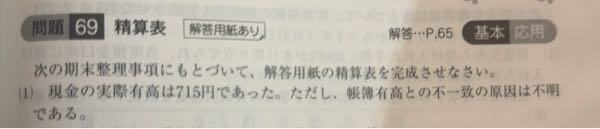 問題 69 精算表 解答用紙あり 解答…P.65 基本 応用
次の期末整理事項にもとづいて、解答用紙の精算表を完成させなさい。
(1) 現金の実際有高は715円であった。ただし、帳簿有高との不一致の原因は不明
である。